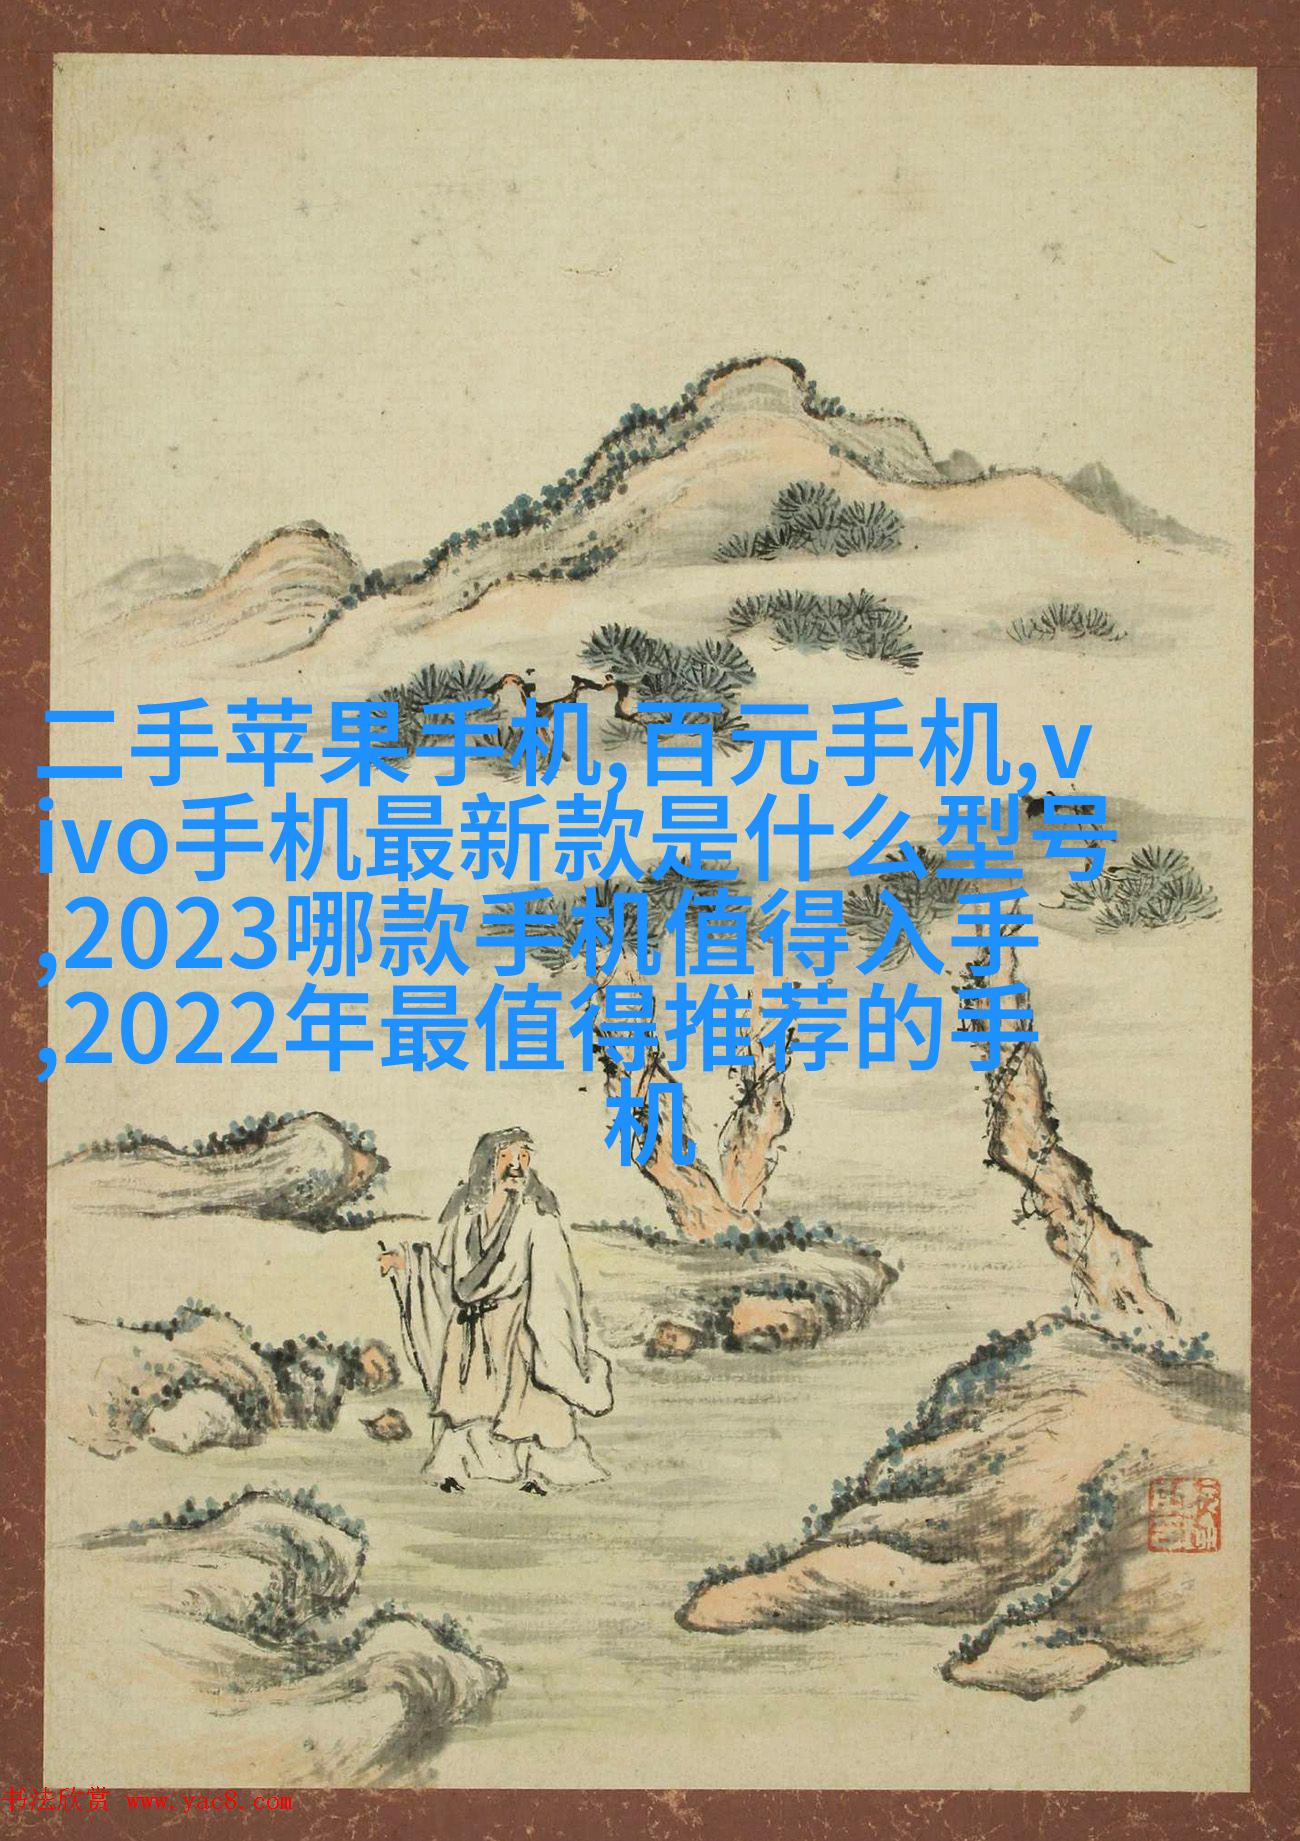 二手苹果手机,百元手机,v
ivo手机最新款是什么型号
,2023哪款手机值得入手
,2022年最值得推荐的手
机
书法欣赏 www.yac8.com